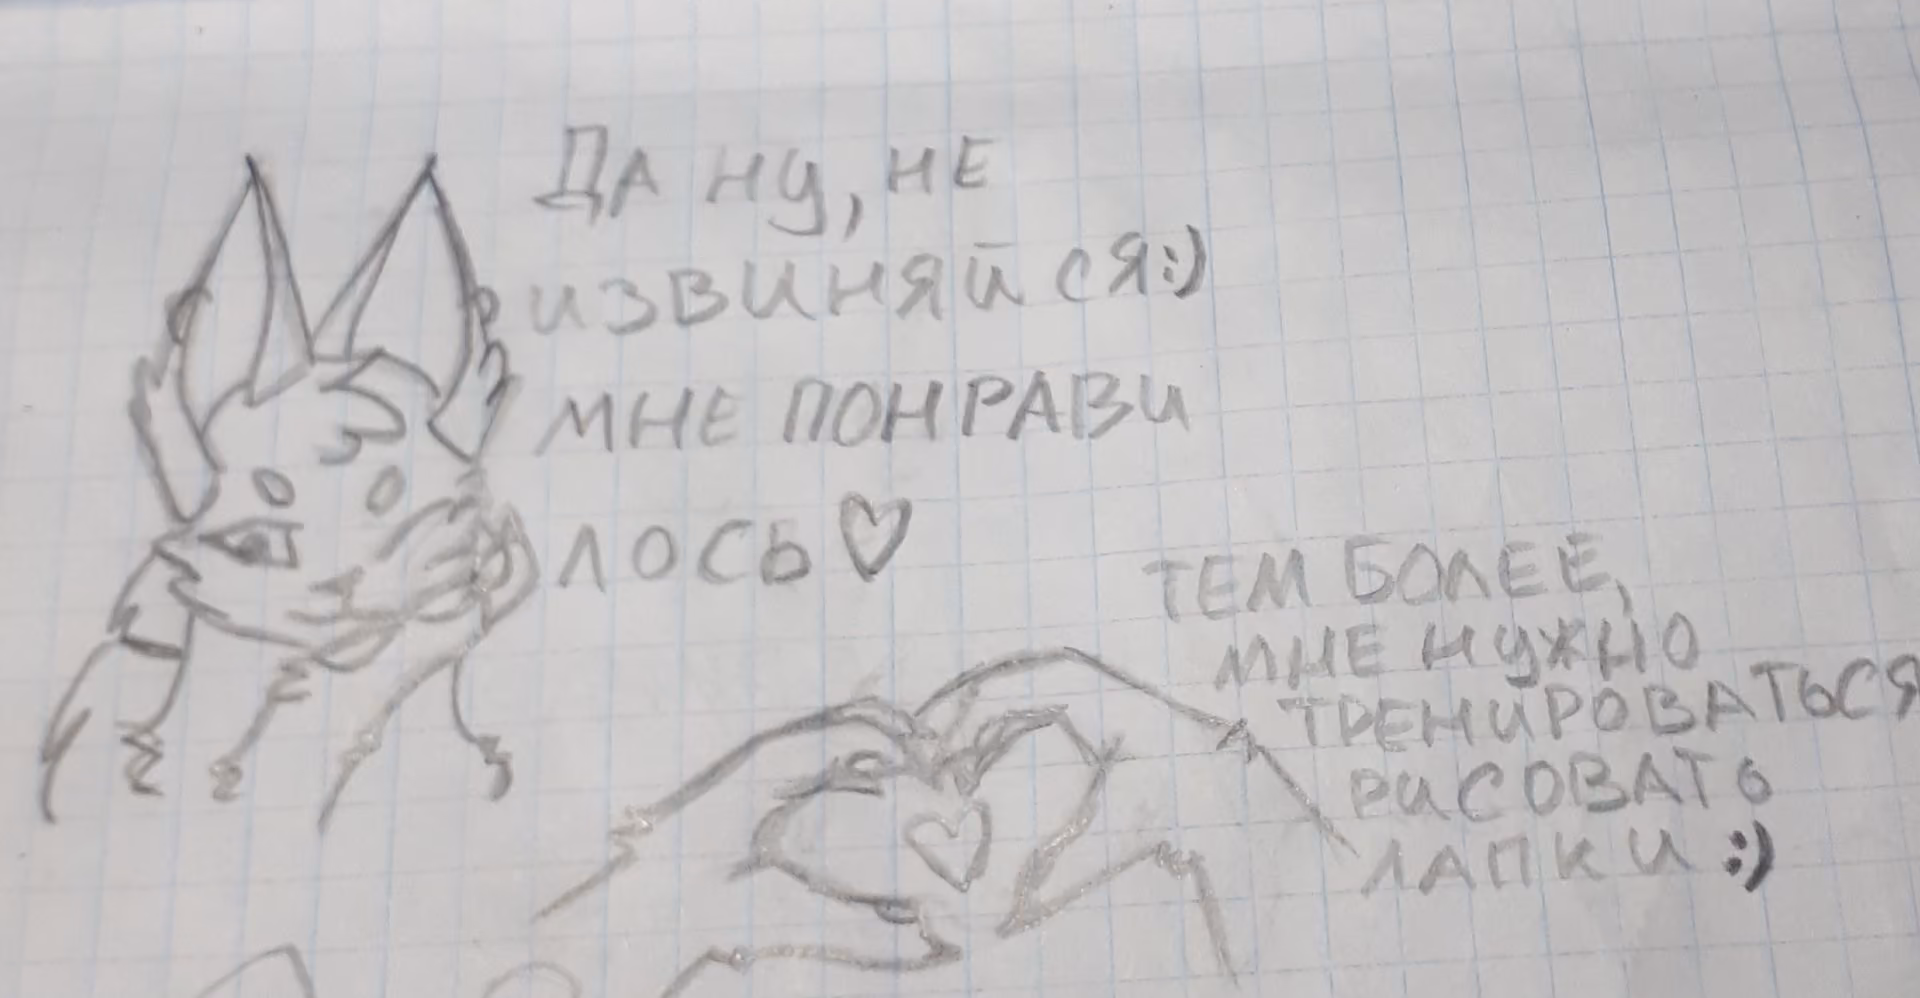 ДА НУ, НЕ
ИЗВИНЯЙСЯ:)
МНЕ ПОНРАВИ
ЛОСЬ♡
ТЕМ БОЛЕЕ,
МНЕ НУЖНО
ТРЕНИРОВАТЬСЯ
РИСОВАТЬ
ЛАПКИ :)